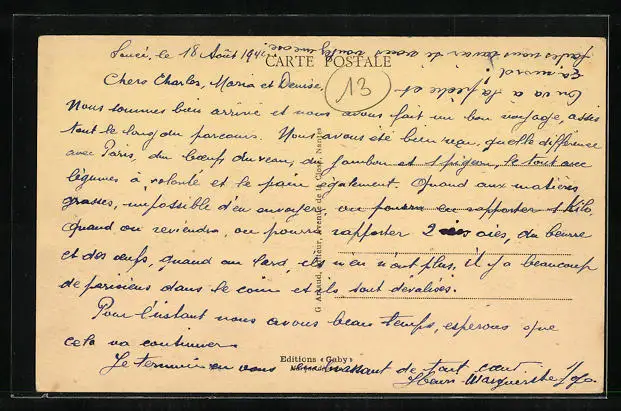 le 18 Août 194
CARTE POSTALE
13
Chers Charles, Maria et Denise,
Nous sommes bien arrivé et nous avons fait un bon voyage, assis
tout le long du parcours. Nous avons été bien reçu, quelle différence
avec Paris, du bœuf du veau, du jambon et 1 pigeon, le tout avec
légumes à volonté et le pain également. Quand aux matières
grasses, impossible d'en envoyer, on pourra en rapporter 1 kilo,
quand on reviendra, on pourra rapporter 2 oies, du beurre
et des œufs, quand au lard, ils n'en n'ont plus, il y a beaucoup
de parisiens dans le coin et ils sont dévalisés.
Pour l'instant nous avons beau temps, espérons que
cela va continuer.
Je termine en vous embrassant de tout cœur.
Henri Marguerite
On va à la pêche et
G. Artaud, Editeur, avenue de la Close, Nantes
Editions «Gaby»